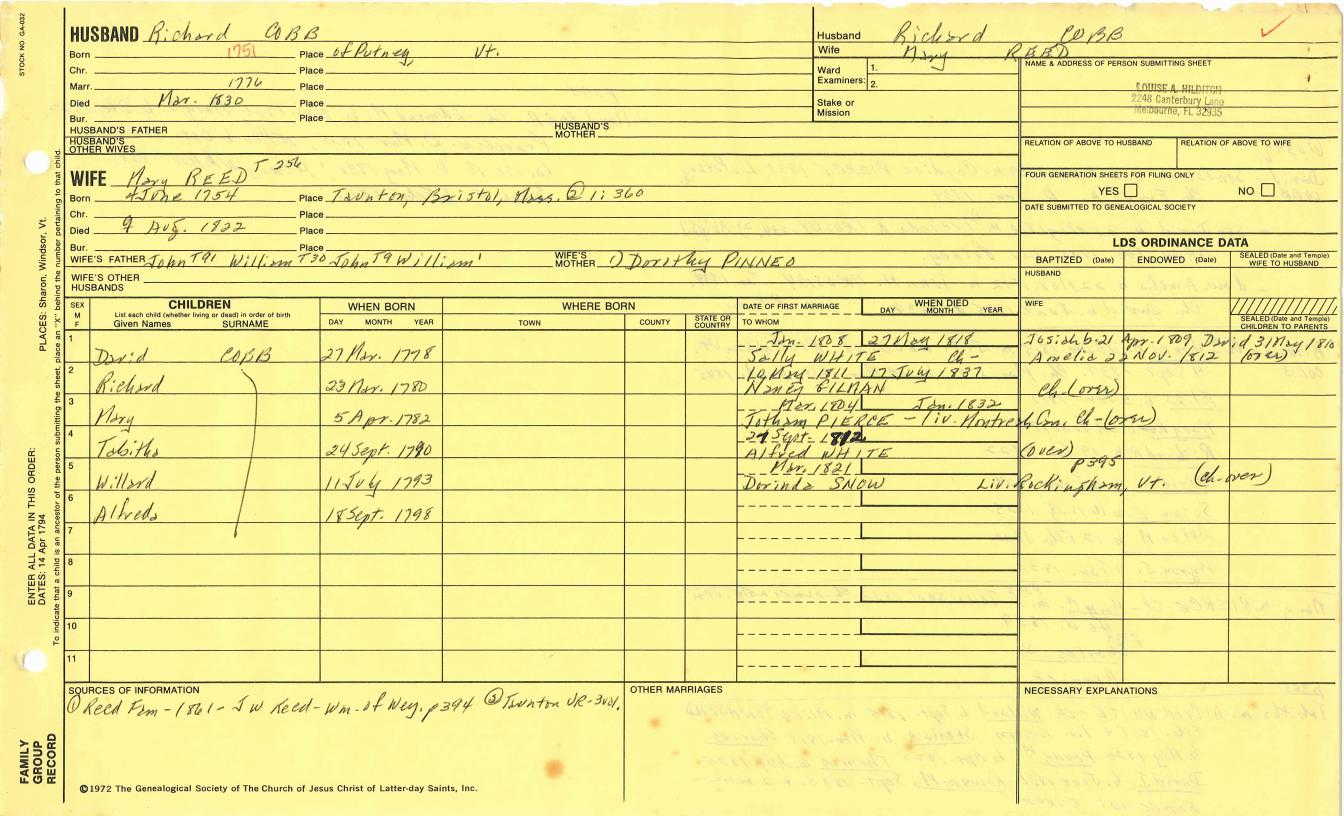 STOCK NO. GA-032
HUSBAND Richard COBB
Born 1751 Place of Putney, Vt.
Chr. Place
Marr. 1776 Place
Died Mar. 1830 Place
Bur. Place
HUSBAND'S FATHER HUSBAND'S MOTHER
HUSBAND'S OTHER WIVES
Husband Richard COBB
Wife Mary REED
Ward Examiners: 1. 2.
Stake or Mission
NAME & ADDRESS OF PERSON SUBMITTING SHEET
LOUISE A. HILDITCH
2248 Canterbury Lane
Melbourne, FL 32935
RELATION OF ABOVE TO HUSBAND RELATION OF ABOVE TO WIFE
FOUR GENERATION SHEETS FOR FILING ONLY
YES NO
DATE SUBMITTED TO GENEALOGICAL SOCIETY
WIFE Mary REED T 256
Born 4 June 1754 Place Taunton, Bristol, Mass. @ 1: 360
Chr. Place
Died 9 Aug. 1822 Place
Bur. Place
WIFE'S FATHER John T91 William T30 John T9 William' WIFE'S MOTHER 1) Dorothy PINNEO
WIFE'S OTHER HUSBANDS
LDS ORDINANCE DATA
BAPTIZED (Date) ENDOWED (Date) SEALED (Date and Temple) WIFE TO HUSBAND
HUSBAND
WIFE
SEALED (Date and Temple) CHILDREN TO PARENTS
SEX M F
CHILDREN
List each child (whether living or dead) in order of birth
Given Names SURNAME
WHEN BORN DAY MONTH YEAR
WHERE BORN TOWN COUNTY STATE OR COUNTRY
DATE OF FIRST MARRIAGE TO WHOM
WHEN DIED DAY MONTH YEAR
1 Jan. 1808 27 May 1818 Josiah b-21 Apr. 1809, David 31 May 1810
David COBB 27 Mar. 1778 Sally WHITE Ch- Amelia 22 Nov. 1812 (over)
2 10 May 1811 17 July 1837
Richard 23 Mar. 1780 Nancy GILMAN Ch-(over)
3 Mar. 1804 Jan. 1832
Mary 5 Apr. 1782 Jotham PIERCE - liv. Montreal, Can. Ch-(over)
4 27 Sept. 1812
Tabitha 24 Sept. 1790 Alfred WHITE (over)
5 Mar. 1821 p395
Willard 11 July 1793 Dorinda SNOW Liv. Rockingham, Vt. (Ch-over)
6
Alfreda 18 Sept. 1798
7
8
9
10
11
SOURCES OF INFORMATION
① Reed Fam - 1861 - J W Reed - Wm. of Wey. p394 ② Taunton VR-
OTHER MARRIAGES
NECESSARY EXPLANATIONS
©1972 The Genealogical Society of The Church of Jesus Christ of Latter-day Saints, Inc.
FAMILY GROUP RECORD
ENTER ALL DATA IN THIS ORDER:
DATES: 14 Apr 1794
PLACES: Sharon, Windsor, Vt.
To indicate that a child is an ancestor of the person submitting the sheet, place an "X" behind the number pertaining to that child.